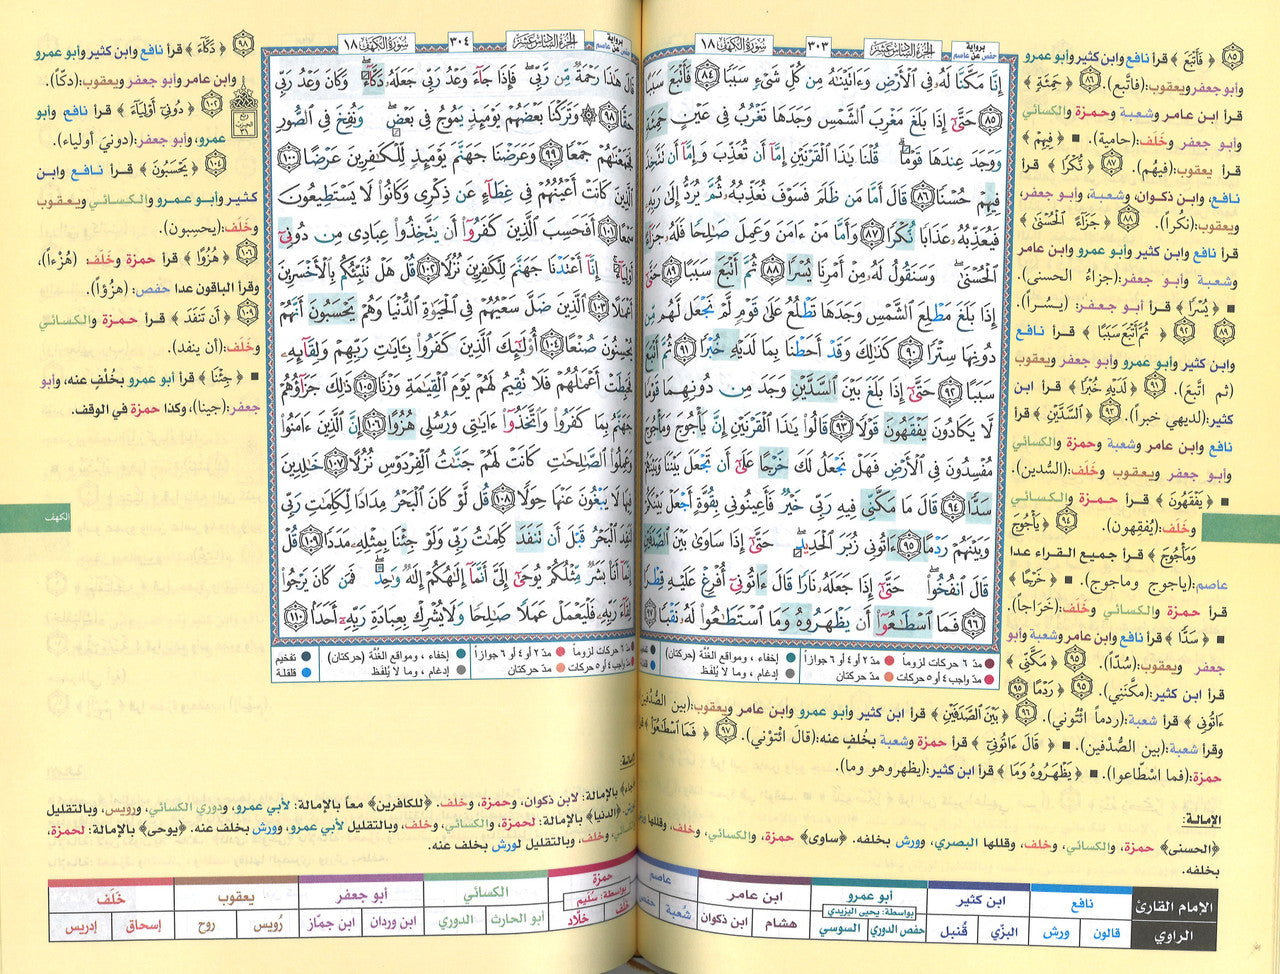 برواية حفص عن عاصم
الجزء السادس عشر
٣٠٣
سورة الكهف ١٨
إِنَّا مَكَّنَّا لَهُۥ فِى ٱلْأَرْضِ وَءَاتَيْنَٰهُ مِن كُلِّ شَىْءٍ سَبَبًا ٨٤ فَأَتْبَعَ سَبَبًا
٨٥ حَتَّىٰٓ إِذَا بَلَغَ مَغْرِبَ ٱلشَّمْسِ وَجَدَهَا تَغْرُبُ فِى عَيْنٍ حَمِئَةٍ
وَوَجَدَ عِندَهَا قَوْمًا قُلْنَا يَٰذَا ٱلْقَرْنَيْنِ إِمَّآ أَن تُعَذِّبَ وَإِمَّآ أَن تَتَّخِذَ
فِيهِمْ حُسْنًا ٨٦ قَالَ أَمَّا مَن ظَلَمَ فَسَوْفَ نُعَذِّبُهُۥ ثُمَّ يُرَدُّ إِلَىٰ رَبِّهِۦ
فَيُعَذِّبُهُۥ عَذَابًا نُّكْرًا ٨٧ وَأَمَّا مَنْ ءَامَنَ وَعَمِلَ صَٰلِحًا فَلَهُۥ جَزَآءً
ٱلْحُسْنَىٰ وَسَنَقُولُ لَهُۥ مِنْ أَمْرِنَا يُسْرًا ٨٨ ثُمَّ أَتْبَعَ سَبَبًا ٨٩ حَتَّىٰٓ
إِذَا بَلَغَ مَطْلِعَ ٱلشَّمْسِ وَجَدَهَا تَطْلُعُ عَلَىٰ قَوْمٍ لَّمْ نَجْعَل لَّهُم مِّن
دُونِهَا سِتْرًا ٩٠ كَذَٰلِكَ وَقَدْ أَحَطْنَا بِمَا لَدَيْهِ خُبْرًا ٩١ ثُمَّ أَتْبَعَ
سَبَبًا ٩٢ حَتَّىٰٓ إِذَا بَلَغَ بَيْنَ ٱلسَّدَّيْنِ وَجَدَ مِن دُونِهِمَا قَوْمًا
لَّا يَكَادُونَ يَفْقَهُونَ قَوْلًا ٩٣ قَالُوا۟ يَٰذَا ٱلْقَرْنَيْنِ إِنَّ يَأْجُوجَ وَمَأْجُوجَ
مُفْسِدُونَ فِى ٱلْأَرْضِ فَهَلْ نَجْعَلُ لَكَ خَرْجًا عَلَىٰٓ أَن تَجْعَلَ بَيْنَنَا وَبَيْنَهُمْ
سَدًّا ٩٤ قَالَ مَا مَكَّنِّى فِيهِ رَبِّى خَيْرٌ فَأَعِينُونِى بِقُوَّةٍ أَجْعَلْ بَيْنَكُمْ
وَبَيْنَهُمْ رَدْمًا ٩٥ ءَاتُونِى زُبَرَ ٱلْحَدِيدِ حَتَّىٰٓ إِذَا سَاوَىٰ بَيْنَ ٱلصَّدَفَيْنِ
قَالَ ٱنفُخُوا۟ حَتَّىٰٓ إِذَا جَعَلَهُۥ نَارًا قَالَ ءَاتُونِىٓ أُفْرِغْ عَلَيْهِ قِطْرًا
٩٦ فَمَا ٱسْطَٰعُوٓا۟ أَن يَظْهَرُوهُ وَمَا ٱسْتَطَٰعُوا۟ لَهُۥ نَقْبًا ٩٧
٨٥ ﴿فَأَتْبَعَ﴾ قرأ نافع وابن كثير وأبو عمرو
وأبو جعفر ويعقوب: (فاتَّبع). ٨٦ ﴿حَمِئَةٍ﴾
قرأ ابن عامر وشعبة وحمزة والكسائي
وأبو جعفر وخلف: (حامية). ■ ﴿فِيهِمْ﴾
قرأ يعقوب: (فيهُم). ٨٧ ﴿نُّكْرًا﴾ قرأ
نافع، وابن ذكوان، وشعبة، وأبو جعفر،
ويعقوب: (نُكُراً). ٨٨ ﴿جَزَآءً ٱلْحُسْنَىٰ﴾
قرأ نافع وابن كثير وأبو عمرو وابن عامر
وشعبة وأبو جعفر: (جزاءُ الحسنى).
■ ﴿يُسْرًا﴾ قرأ أبو جعفر: (يُسُراً).
٨٩ ٩٢ ﴿ثُمَّ أَتْبَعَ سَبَبًا﴾ قرأ نافع
وابن كثير وأبو عمرو وأبو جعفر ويعقوب
(ثم اتَّبعَ). ٩١ ﴿لَدَيْهِ خُبْرًا﴾ قرأ ابن
كثير: (لديهي خبراً). ٩٣ ﴿ٱلسَّدَّيْنِ﴾ قرأ
نافع وابن عامر وشعبة وحمزة والكسائي
وأبو جعفر ويعقوب وخلف: (السُّدين).
■ ﴿يَفْقَهُونَ﴾ قرأ حمزة والكسائي
وخلف: (يُفقِهون). ٩٤ ﴿يَأْجُوجَ
وَمَأْجُوجَ﴾ قرأ جميع القراء عدا
عاصم: (ياجوج وماجوج). ■ ﴿خَرْجًا﴾
قرأ حمزة والكسائي وخلف: (خَرَاجاً).
■ ﴿سَدًّا﴾ قرأ نافع وابن عامر وشعبة وأبو
جعفر ويعقوب: (سُدّاً). ٩٥ ﴿مَكَّنِّى﴾
قرأ ابن كثير: (مكَّنَني). ٩٥ ﴿رَدْمًا ٩٥
ءَاتُونِى﴾ قرأ شعبة: (ردماً ائتوني). ٩٦ ﴿بَيْنَ ٱلصَّدَفَيْنِ﴾ قرأ ابن كثير وأبو عمرو وابن عامر ويعقوب: (بين الصُّدُفين)
وقرأ شعبة: (بين الصُّدْفين). ■ ﴿قَالَ ءَاتُونِىٓ﴾ قرأ حمزة وشعبة بخلف عنه: (قال ائتوني). ٩٧ ﴿فَمَا ٱسْطَٰعُوٓا۟﴾ قرأ
حمزة: (فما اسطَّاعوا). ■ ﴿يَظْهَرُوهُ وَمَا﴾ قرأ ابن كثير: (يظهروهو وما).
الإمالة:
﴿الحسنى﴾ حمزة، والكسائي، وخلف، وقللها البصري، وورش بخلفه. ﴿ساوى﴾ حمزة، والكسائي، وخلف، وقللها ورش
بخلفه.
مدّ ٦ حركات لزوماً
مدّ ٢ أو ٤ أو ٦ جوازاً
إخفاء، ومواقع الغُنَّة (حركتان)
مدّ واجب ٤ أو ٥ حركات
مدّ حركتان
إدغام، وما لا يُلفَظ
الإمام القارئ
نافع
ابن كثير
أبو عمرو
بواسطة: يحيى اليزيدي
ابن عامر
عاصم
الراوي
قالون
ورش
البزّي
قُنبل
حفص الدوري
السوسي
هشام
ابن ذكوان
شُعبة
حفص
الجزء السادس عشر
٣٠٤
سورة الكهف ١٨
برواية حفص عن عاصم
قَالَ هَٰذَا رَحْمَةٌ مِّن رَّبِّى فَإِذَا جَآءَ وَعْدُ رَبِّى جَعَلَهُۥ دَكَّآءَ وَكَانَ وَعْدُ رَبِّى
حَقًّا ٩٨ وَتَرَكْنَا بَعْضَهُمْ يَوْمَئِذٍ يَمُوجُ فِى بَعْضٍ وَنُفِخَ فِى ٱلصُّورِ
فَجَمَعْنَٰهُمْ جَمْعًا ٩٩ وَعَرَضْنَا جَهَنَّمَ يَوْمَئِذٍ لِّلْكَٰفِرِينَ عَرْضًا ١٠٠
ٱلَّذِينَ كَانَتْ أَعْيُنُهُمْ فِى غِطَآءٍ عَن ذِكْرِى وَكَانُوا۟ لَا يَسْتَطِيعُونَ
سَمْعًا ١٠١ أَفَحَسِبَ ٱلَّذِينَ كَفَرُوٓا۟ أَن يَتَّخِذُوا۟ عِبَادِى مِن دُونِىٓ
أَوْلِيَآءَ إِنَّآ أَعْتَدْنَا جَهَنَّمَ لِلْكَٰفِرِينَ نُزُلًا ١٠٢ قُلْ هَلْ نُنَبِّئُكُم بِٱلْأَخْسَرِينَ
أَعْمَٰلًا ١٠٣ ٱلَّذِينَ ضَلَّ سَعْيُهُمْ فِى ٱلْحَيَوٰةِ ٱلدُّنْيَا وَهُمْ يَحْسَبُونَ أَنَّهُمْ
يُحْسِنُونَ صُنْعًا ١٠٤ أُو۟لَٰٓئِكَ ٱلَّذِينَ كَفَرُوا۟ بِـَٔايَٰتِ رَبِّهِمْ وَلِقَآئِهِۦ
فَحَبِطَتْ أَعْمَٰلُهُمْ فَلَا نُقِيمُ لَهُمْ يَوْمَ ٱلْقِيَٰمَةِ وَزْنًا ١٠٥ ذَٰلِكَ جَزَآؤُهُمْ
جَهَنَّمُ بِمَا كَفَرُوا۟ وَٱتَّخَذُوٓا۟ ءَايَٰتِى وَرُسُلِى هُزُوًا ١٠٦ إِنَّ ٱلَّذِينَ ءَامَنُوا۟
وَعَمِلُوا۟ ٱلصَّٰلِحَٰتِ كَانَتْ لَهُمْ جَنَّٰتُ ٱلْفِرْدَوْسِ نُزُلًا ١٠٧ خَٰلِدِينَ
فِيهَا لَا يَبْغُونَ عَنْهَا حِوَلًا ١٠٨ قُل لَّوْ كَانَ ٱلْبَحْرُ مِدَادًا لِّكَلِمَٰتِ رَبِّى
لَنَفِدَ ٱلْبَحْرُ قَبْلَ أَن تَنفَدَ كَلِمَٰتُ رَبِّى وَلَوْ جِئْنَا بِمِثْلِهِۦ مَدَدًا ١٠٩ قُلْ
إِنَّمَآ أَنَا۠ بَشَرٌ مِّثْلُكُمْ يُوحَىٰٓ إِلَىَّ أَنَّمَآ إِلَٰهُكُمْ إِلَٰهٌ وَٰحِدٌ فَمَن كَانَ يَرْجُوا۟
لِقَآءَ رَبِّهِۦ فَلْيَعْمَلْ عَمَلًا صَٰلِحًا وَلَا يُشْرِكْ بِعِبَادَةِ رَبِّهِۦٓ أَحَدًۢا ١١٠
٩٨ ﴿دَكَّآءَ﴾ قرأ نافع وابن كثير وأبو عمرو
وابن عامر وأبو جعفر ويعقوب: (دكّاً).
١٠٢ ﴿دُونِىٓ أَوْلِيَآءَ﴾ قرأ نافع وأبو
عمرو، وأبو جعفر: (دونيَ أولياء).
١٠٤ ﴿يَحْسَبُونَ﴾ قرأ نافع وابن
كثير وأبو عمرو والكسائي ويعقوب
وخلف: (يحسِبون).
١٠٦ ﴿هُزُوًا﴾ قرأ حمزة وخلف: (هُزْءاً)،
وقرأ الباقون عدا حفص: (هزُؤاً).
١٠٩ ﴿أَن تَنفَدَ﴾ قرأ حمزة والكسائي
وخلف: (أن ينفد).
■ ﴿جِئْنَا﴾ قرأ أبو عمرو بخُلْفٍ عنه، وأبو
جعفر: (جينا)، وكذا حمزة في الوقف.
الكهف
مدّ ٦ حركات لزوماً
مدّ ٢ أو ٤ أو ٦ جوازاً
إخفاء، ومواقع الغُنَّة (حركتان)
تفخيم
مدّ واجب ٤ أو ٥ حركات
مدّ حركتان
إدغام، وما لا يُلفَظ
قلقلة
الإمالة:
﴿جاء﴾ بالإمالة: لابن ذكوان، وحمزة، وخلف. ﴿للكافرين﴾ معاً بالإمالة: لأبي عمرو، ودوري الكسائي، ورويس، وبالتقليل
لورش. ﴿الدنيا﴾ بالإمالة: لحمزة، والكسائي، وخلف، وبالتقليل لأبي عمرو، وورش بخلف عنه. ﴿يوحى﴾ بالإمالة: لحمزة،
والكسائي، وخلف، وبالتقليل لورش بخلف عنه.
حمزة
بواسطة: سُليم
الكسائي
أبو جعفر
يعقوب
خَلَف
خلف
خلّاد
أبو الحارث
الدوري
ابن وردان
ابن جمّاز
رُويس
روح
إسحاق
إدريس